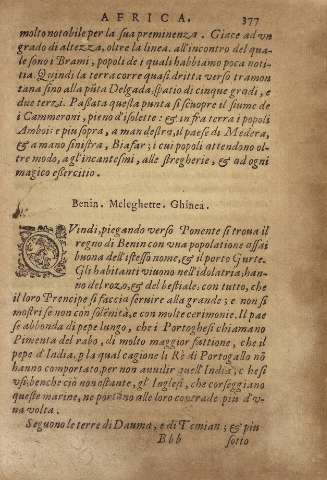 AFRICA. 377
molto notabile per la sua preminenza. Giace ad vn
grado di altezza, oltre la linea. all'incontro del qua-
le sono i Brami, popoli de i quali habbiamo poca noti-
tia. Quindi la terra corre quasi dritta verso tramon
tana sino alla pũta Delgada. spatio di cinque gradi, e
due terzi. Passata questa punta si scuopre il fiume de
i Cammeroni, pieno d'isolette: & in fra terra i popoli
Amboi: e piu sopra, a man destra, il paese di Medera,
& a mano sinistra, Biafar; i cui popoli attendono ol-
tre modo, a gl'incantesmi, alle stregherie, & ad ogni
magico essercitio.
Benin. Meleghette. Ghinea.
QVindi, piegando verso Ponente si troua il
regno di Benin con vna popolatione assai
buona dell'istesso nome, & il porto Gurte.
Gli habitanti viuono nell'idolatria, han-
no del rozo, & del bestiale. con tutto, che
il loro Prencipe si faccia seruire alla grande; e non si
mostri se non con solẽnità, e con molte cerimonie. Il pae
se abbonda di pepe lungo, che i Portoghesi chiamano
Pimenta del rabo, di molto maggior fattione, che il
pepe d'India. p la qual cagione li Rè di Portogallo nõ
hanno comportato, per non auuilir quell'India, che si
vsi. benche ciò non ostante, gl'Inglesi, che corseggiano
queste marine, ne portano alle loro contrade piu d'v-
na volta.
Seguono le terre di Dauma, e di Temian; & piu
Bbb sotto